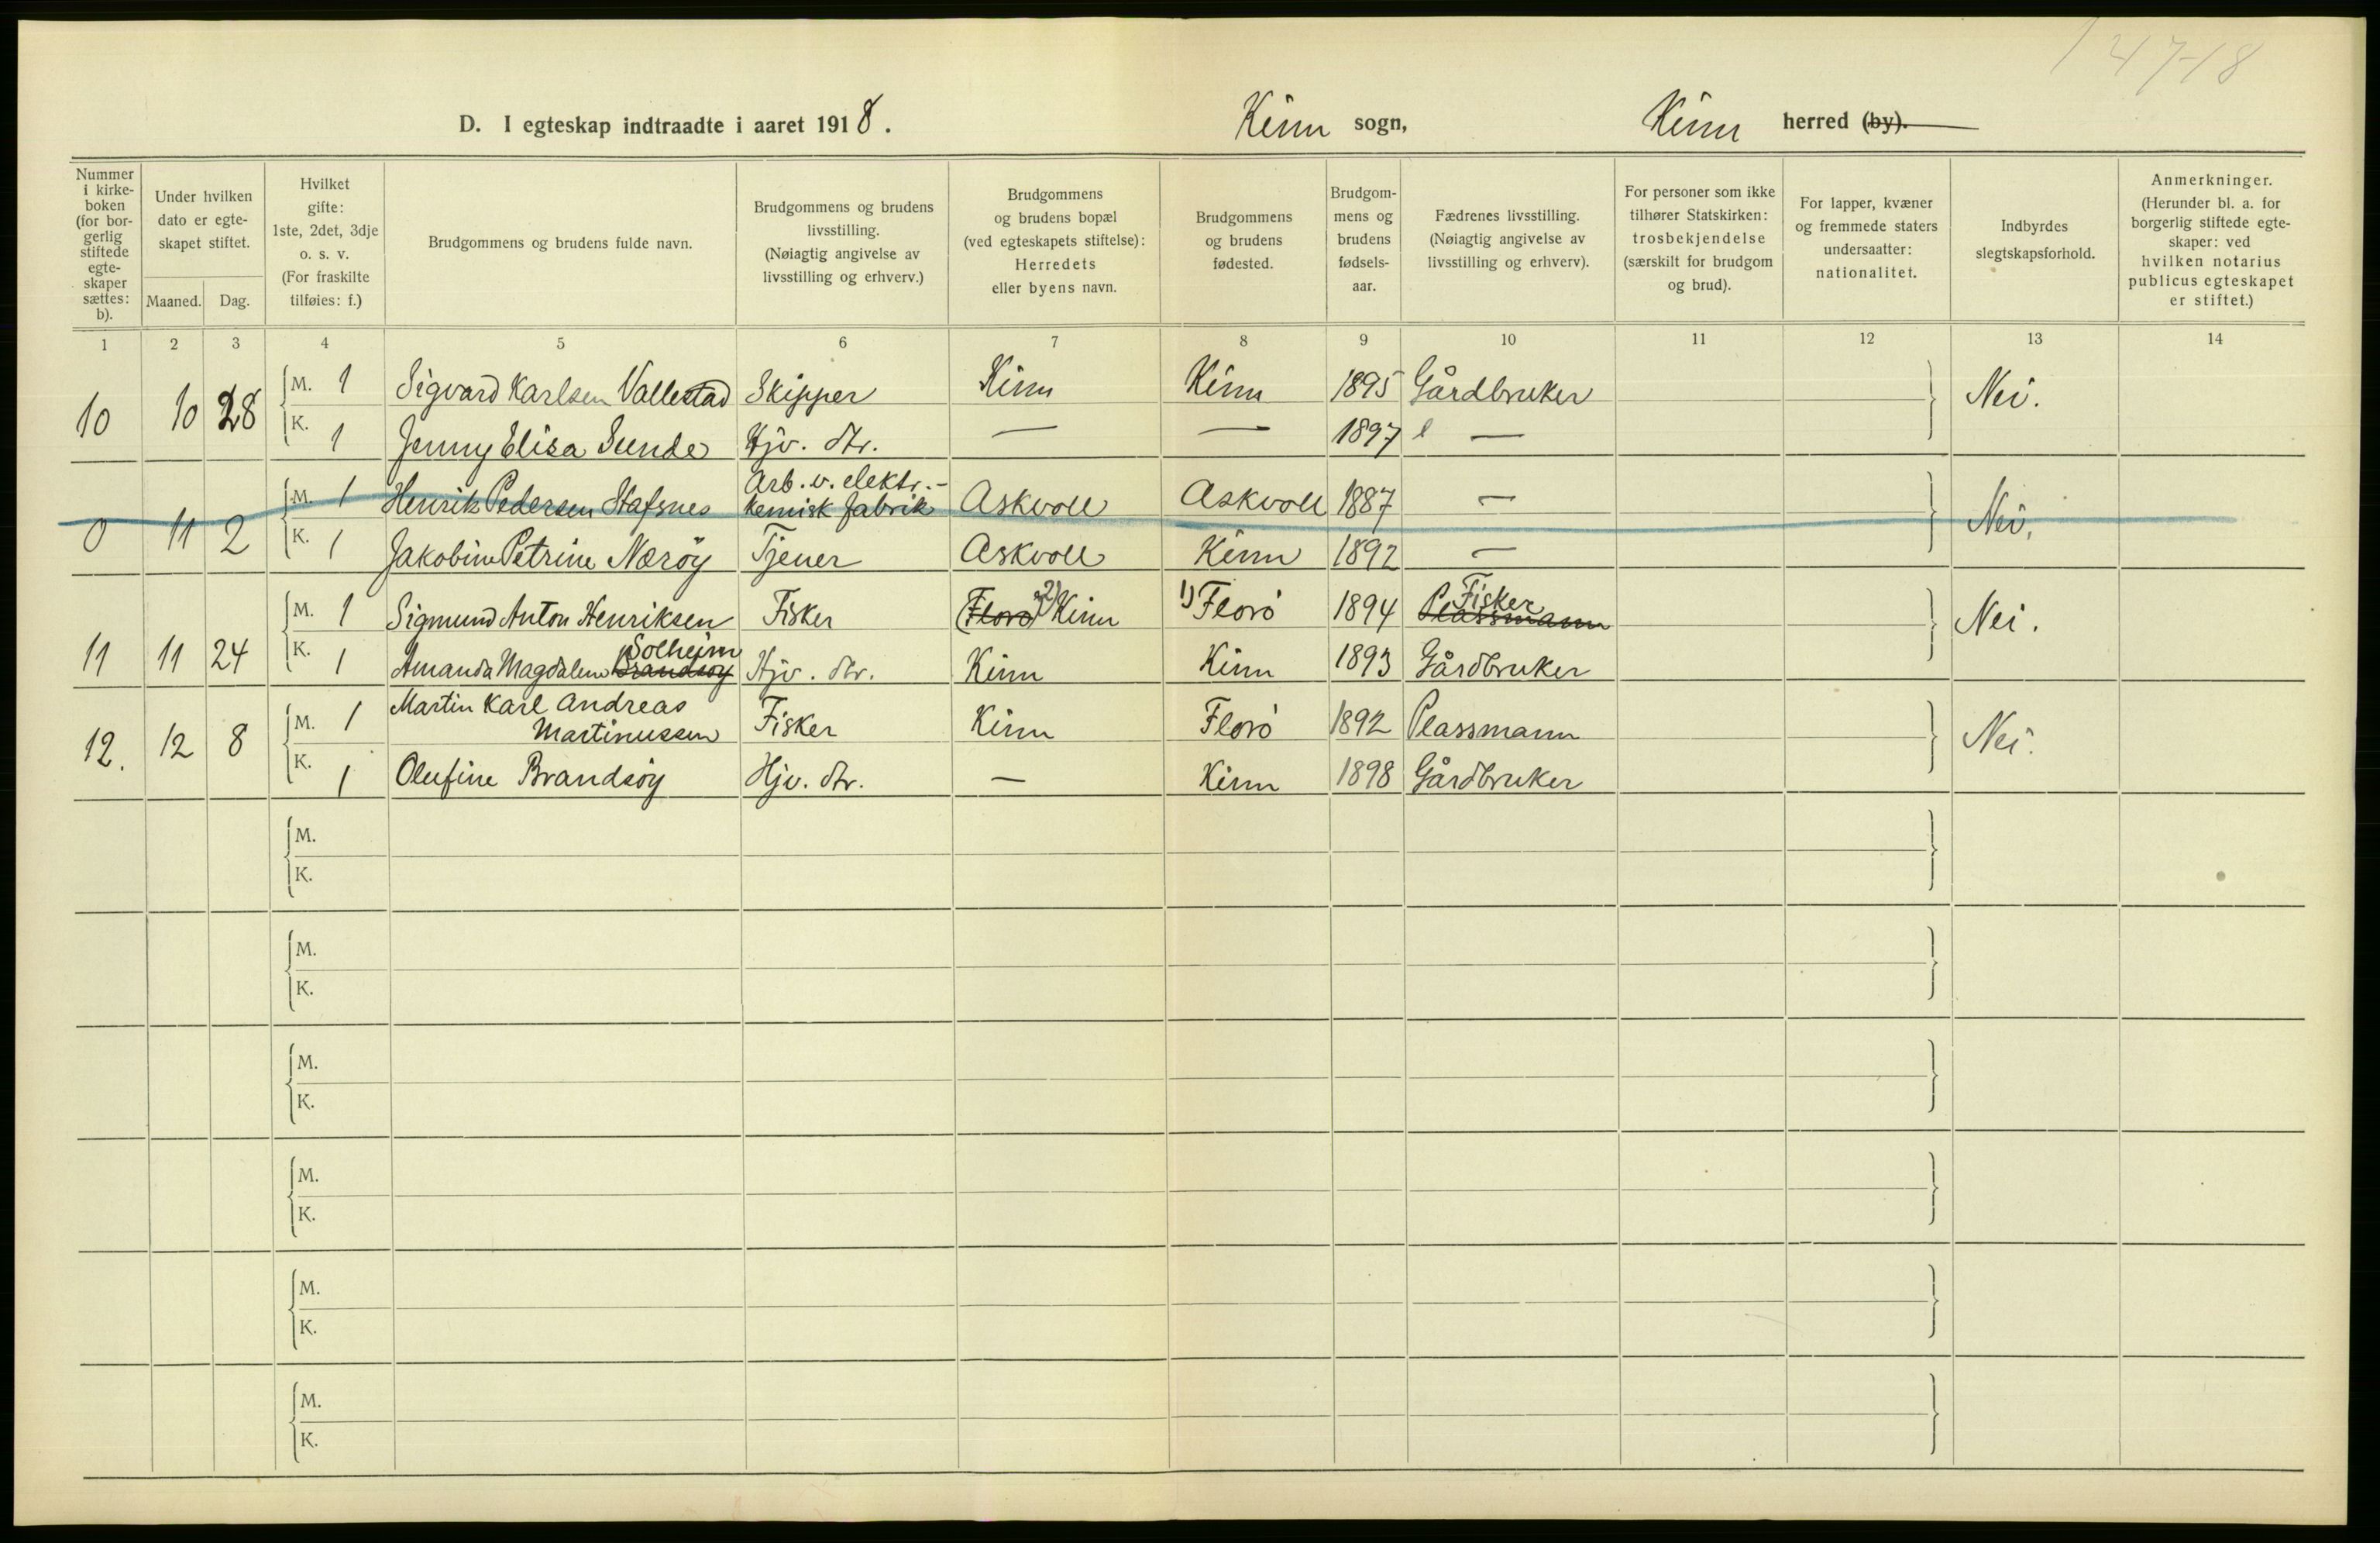 1 47-18
D. I egteskap indtraadte i aaret 1918. Kinn sogn, Kinn herred (by).
Nummer i kirkeboken (for borgerlig stiftede egteskaper sættes: b).
Under hvilken dato er egteskapet stiftet.
Maaned. Dag.
Hvilket gifte: 1ste, 2det, 3dje o. s. v. (For fraskilte tilføies: f.)
Brudgommens og brudens fulde navn.
Brudgommens og brudens livsstilling. (Nøiagtig angivelse av livsstilling og erhverv.)
Brudgommens og brudens bopæl (ved egteskapets stiftelse): Herredets eller byens navn.
Brudgommens og brudens fødested.
Brudgommens og brudens fødselsaar.
Fædrenes livsstilling. (Nøiagtig angivelse av livsstilling og erhverv).
For personer som ikke tilhører Statskirken: trosbekjendelse (særskilt for brudgom og brud).
For lapper, kvæner og fremmede staters undersaatter: nationalitet.
Indbyrdes slegtskapsforhold.
Anmerkninger. (Herunder bl. a. for borgerlig stiftede egteskaper: ved hvilken notarius publicus egteskapet er stiftet.)
1 2 3 4 5 6 7 8 9 10 11 12 13 14
10 10 28 M. 1 Sigvard Karlsen Vallestad Skipper Kinn Kinn 1895 Gårdbruker Nei.
K. 1 Jenny Elisa Sunde Hjv. dtr. — — 1897 —
0 11 2 M. 1 Henrik Pedersen Stafsnes Arb. v. elektr.-kemisk fabrik Askvoll Askvoll 1887 — Nei.
K. 1 Jakobine Petrine Nærøy Tjener Askvoll Kinn 1892 —
11 11 24 M. 1 Sigmund Anton Henriksen Fisker (Florø 2) Kinn 1) Florö 1894 Plassmann Fisker Nei.
K. 1 Amanda Magdalene Brandsøy Solheim Hjv. dtr. Kinn Kinn 1893 Gårdbruker
12. 12 8 M. 1 Martin Karl Andreas Martinussen Fisker Kinn Florö 1892 Plassmann Nei.
K. 1 Olufine Brandsöy Hjv. dtr. — Kinn 1898 Gårdbruker
M.
K.
M.
K.
M.
K.
M.
K.
M.
K.
M.
K.